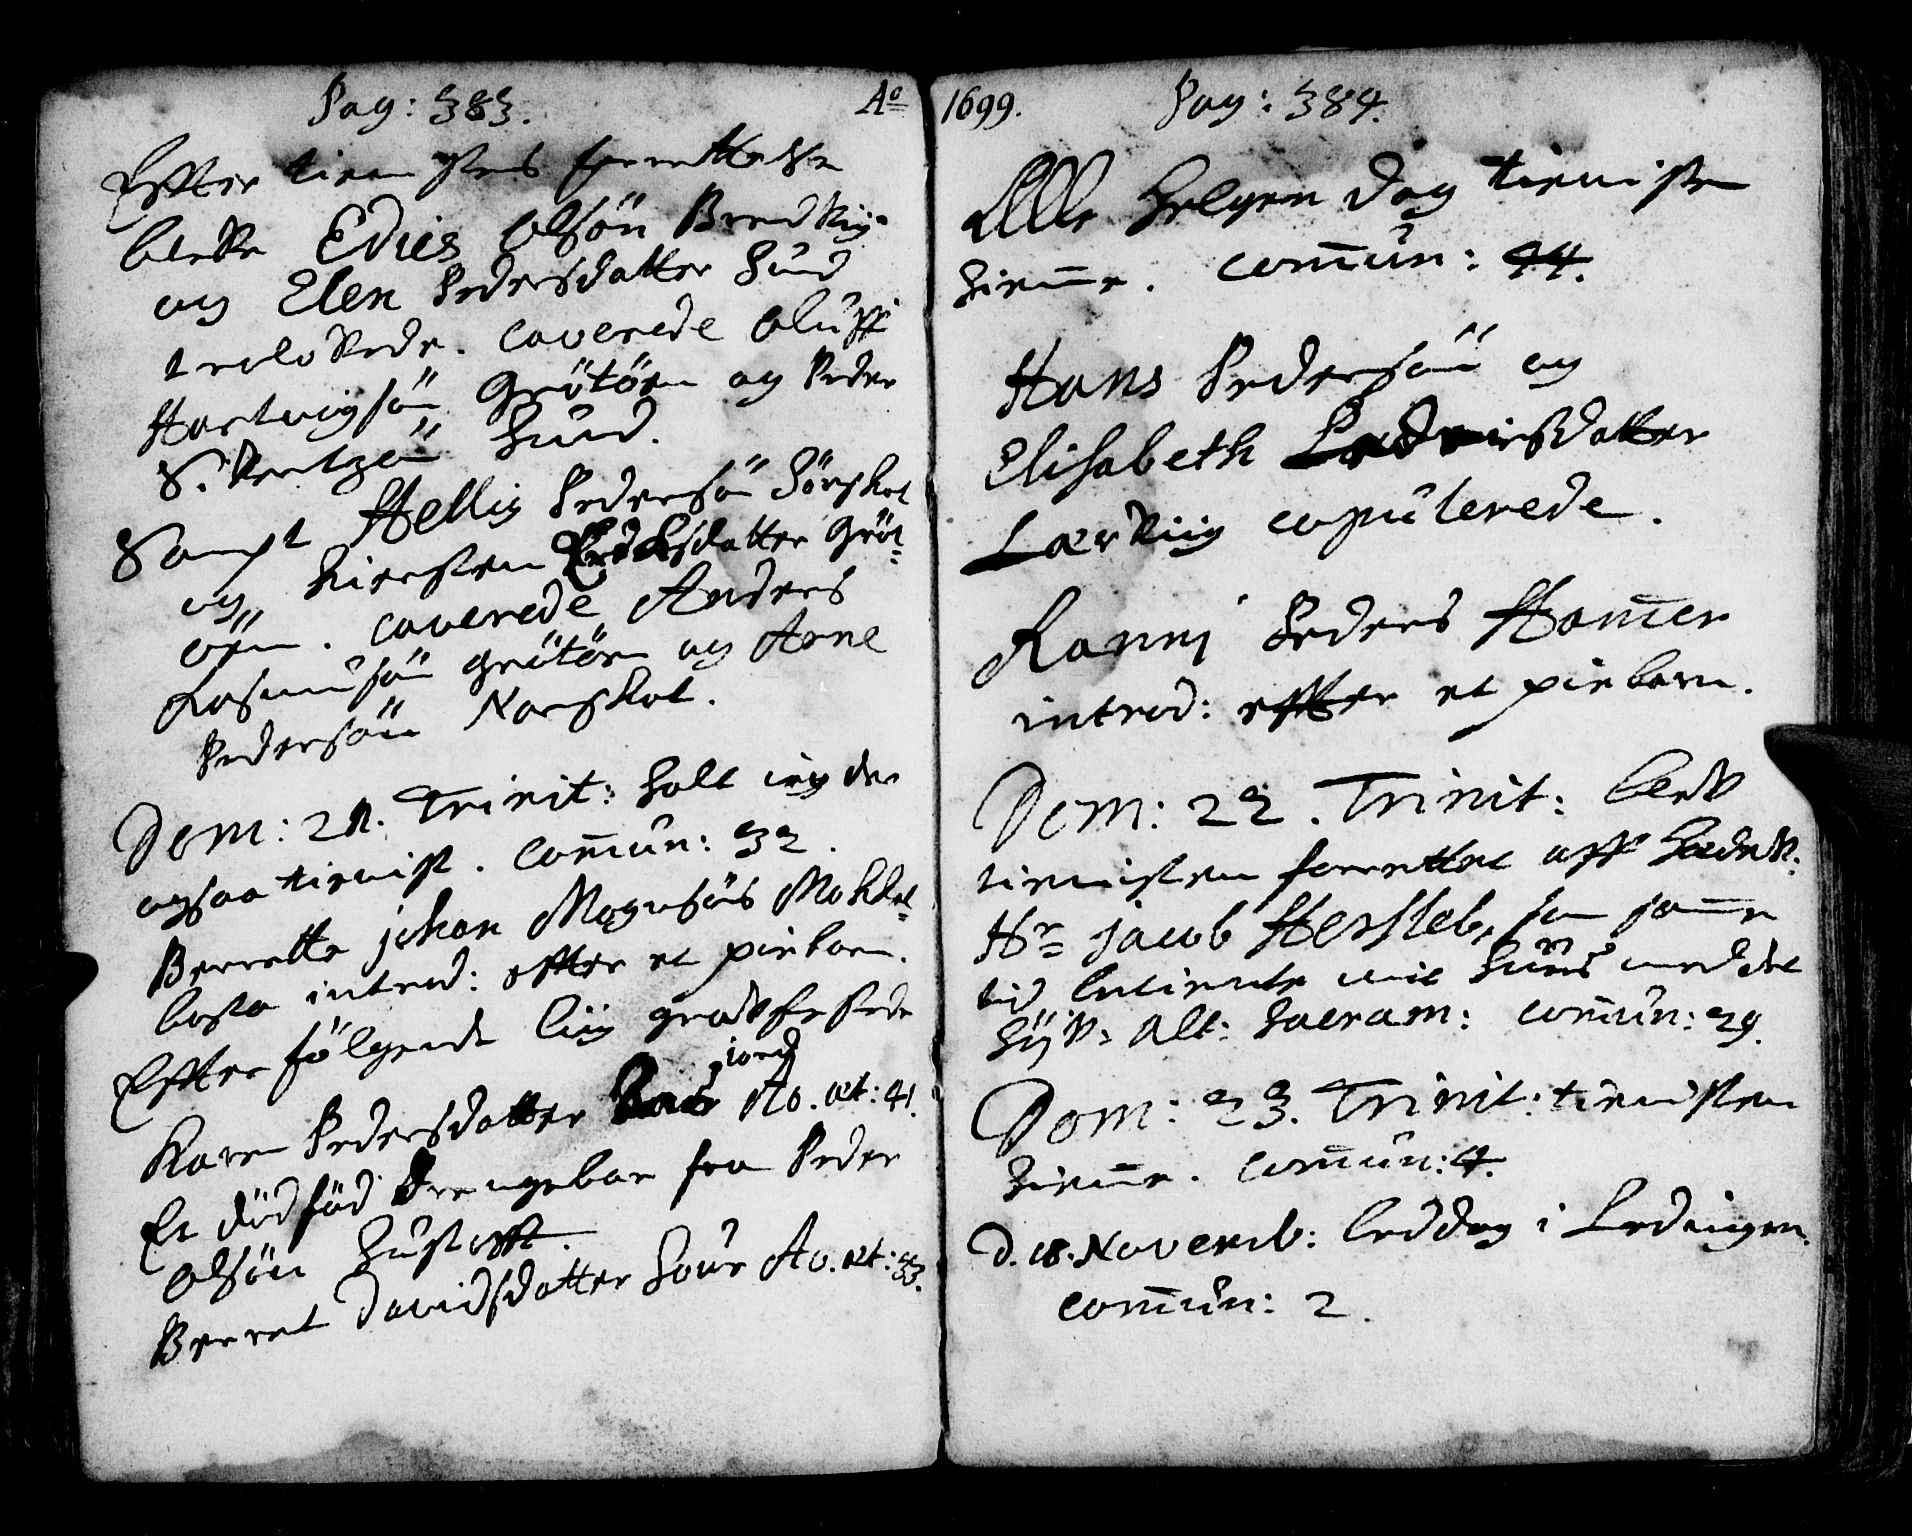 Pag: 383. Ao
Effter tienistens forrettelse
bleffe Edies Olsön Bredviig
og Elen Pedersdatter Sund
trolovede. Caverede Oluff
Hartvigsön Grötöen og Peder
S. Rentzön Sund.
Sampt Hellig Pedersön Sörskot
og Kiersten datter Gröt-
öen. Caverede Anders
Rasmusön Grötöen og Arne
Pedersön Norskot.
Dom: 21. Trinit: holt ieg der
ogsaa tienist. Comun: 32.
Berrette Johan Mognsöns Mokkel-
bosta introd: effter et piebarn.
Effter fölgende liig gradfestede
jord
Karen Pedersdatter Ao. æt: 41.
Et dödföd Drengebarn fra Peder
Olsön
Berret Davidsdatter Ao. æt: 33.
1699. Pag: 384.
Alle Helgen Dag tienisten
hieme. Comun: 44.
Hans Pedersön og
Elisabeth datter
Lærviig copulerede.
Ranni Peders Hamer
introd: effter et piebarn.
Dom: 22. Trinit: blev
tienisten forrettet aff Hæderv:
Hr Jacob Hersleb, som same
tid betiente mit huus med det
Höjv: Alt: Sacram: Comun: 29.
Dom: 23. Trinit: tienisten
hieme. Comun: 4.
D. 18. Novemb: beddag i Lødingen.
Comun: 2.